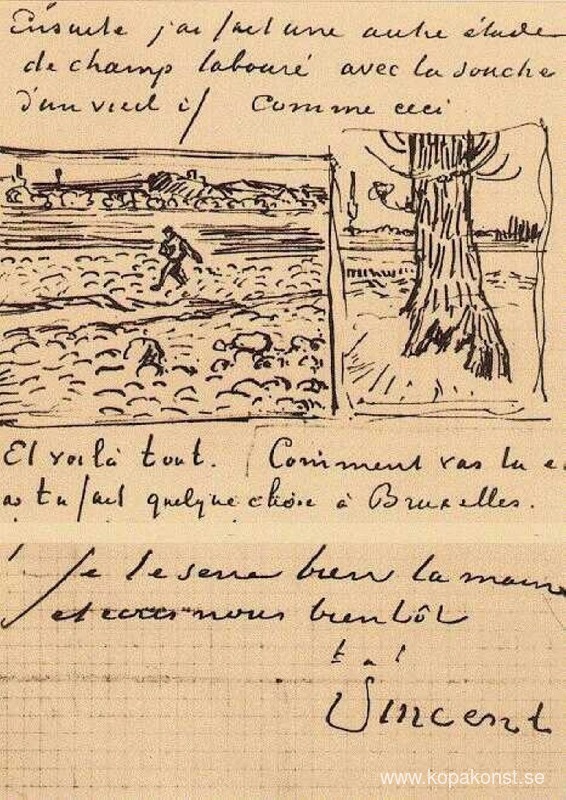 Ensuite j'ai fait une autre étude
de champ labouré avec la souche
d'un vieil if comme ceci
Et voilà tout. Comment vas tu e
as tu fait quelque chose à Bruxelles.
Je te serre bien la main
et ecris nous bientôt
t. à t.
Vincent
www.kopakonst.se